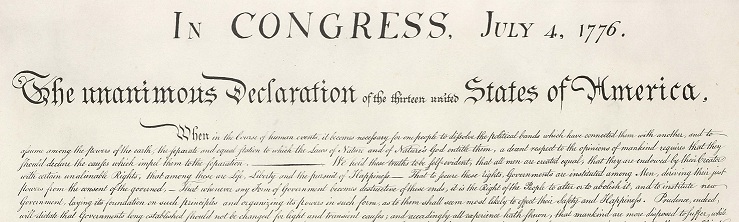 In CONGRESS, July 4, 1776.
The unanimous Declaration of the thirteen united States of America,
When in the Course of human events, it becomes necessary for one people to dissolve the political bands which have connected them with another, and to
assume among the powers of the earth, the separate and equal station to which the Laws of Nature and of Nature's God entitle them, a decent respect to the opinions of mankind requires that they
should declare the causes which impel them to the separation. ——— We hold these truths to be self-evident, that all men are created equal, that they are endowed by their Creator
with certain unalienable Rights, that among these are Life, Liberty and the pursuit of Happiness.— That to secure these rights, Governments are instituted among Men, deriving their just
powers from the consent of the governed,— That whenever any Form of Government becomes destructive of these ends, it is the Right of the People to alter or to abolish it, and to institute new
Government, laying its foundation on such principles and organizing its powers in such form, as to them shall seem most likely to effect their Safety and Happiness. Prudence, indeed,
will dictate that Governments long established should not be changed for light and transient causes; and accordingly all experience hath shewn, that mankind are more disposed to suffer, while